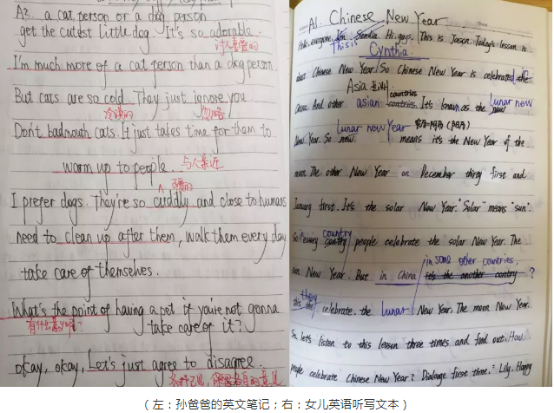 A2. a cat person or a dog person
get the cutest little dog. It's so adorable.
讨人喜爱的
I'm much more of a cat person than a dog person
But cats are so cold. They just ignore you
冷漠的
忽略
Don't badmouth cats. It just takes time for them to
warm up to people. 与人亲近
I prefer dogs. They're so cuddly and close to humans
need to clean up after them, walk them every day
take care of themselves.
What's the point of having a pet if you're not gonna
take care of it?
okay, okay, Let's just agree to disagree.
A1. Chinese New Year
everyone. Hi, guys. This is Jason. Today's lesson is
This is
Cynthia
about Chinese New Year. So Chinese New Year is celebrated
Asia
countries
China And other asian countries. It's known as the lunar new
Lunar new Year
New Year. So means it's the New Year of the
moon. The other New Year on December thirty first and
January first. It's the solar New Year. "Solar" means "sun".
country
So many people celebrate the solar New Year. The
in some other countries.
New Year. But in China its the another contry ?
they
celebrate the lunar New Year. The moon New Year.
So lets listen to this lesson three times and find out How
people celebrate Chinese New Year? Dialogue first three. Lily. Happy
（左：孙爸爸的英文笔记；右：女儿英语听写文本）